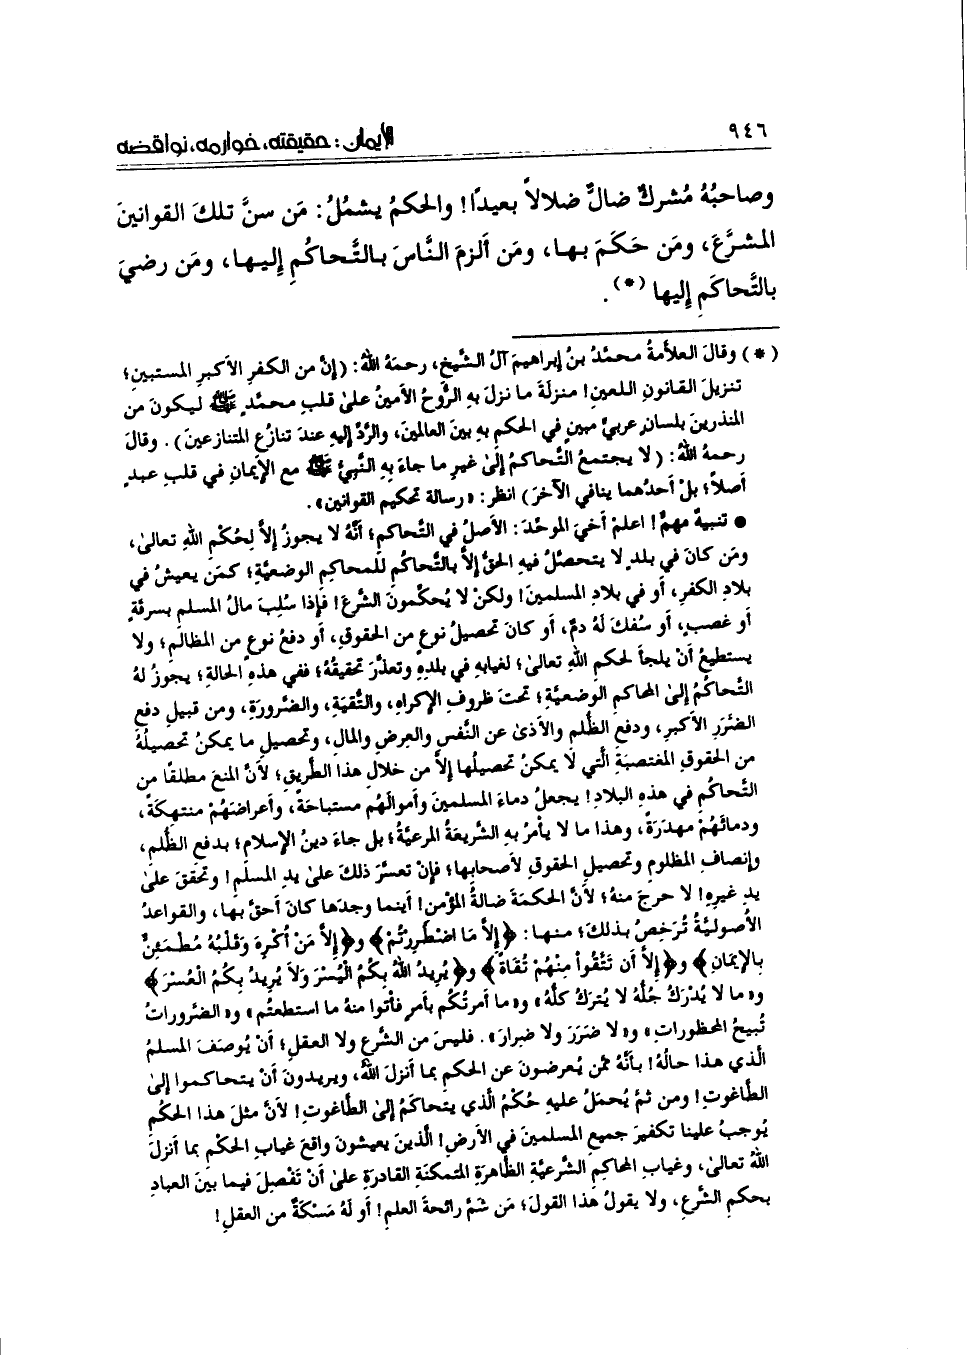 ٩٤٦
الإيمان: حقيقته، خوارمه، نواقضه
وصاحبُهُ مُشركٌ ضالٌّ ضلالاً بعيدًا! والحكمُ يشمُلُ: مَن سنَّ تلكَ القوانينَ
المشرَّعَ، ومَن حَكَمَ بـها، ومَن ألزمَ النَّاسَ بالتَّحاكُمِ إليـها، ومَن رضيَ
بالتَّحاكَمِ إليها (*).
(*) وقالَ العلاَّمةُ محمَّدُ بنُ إبراهيمَ آلُ الشَّيخِ، رحمَهُ اللهُ: (إنَّ من الكفرِ الأكبرِ المستبينِ؛
تنزيلَ القانونِ اللعينِ! منزلَةَ ما نزلَ بهِ الرُّوحُ الأمينُ علىٰ قلبِ محمَّدٍ ﷺ ليكونَ من
المنذرينَ بلسانٍ عربيٍّ مبينٍ في الحكمِ بهِ بينَ العالمينَ، والرَّدِّ إليهِ عندَ تنازُعِ المتنازعينَ). وقالَ
رحمهُ اللهُ: (لا يجتمعُ التَّحاكمُ إلىٰ غيرِ ما جاءَ بِهِ النَّبيُّ ﷺ مع الإيمانِ في قلبِ عبدٍ
أصلاً؛ بلْ أحدُهما ينافي الآخرَ) انظر: «رسالة تحكيم القوانين».
● تنبيهٌ مهمٌّ! اعلمْ أخيَ الموحِّدَ: الأصلُ في التَّحاكمِ؛ أنَّهُ لا يجوزُ إلاَّ لِحُكْمِ اللهِ تعالىٰ،
ومَن كانَ في بلدٍ لا يتحصَّلُ فيهِ الحقُّ إلاَّ بالتَّحاكُمِ للمحاكمِ الوضعيَّةِ؛ كمَن يعيشُ في
بلادِ الكفرِ، أو في بلادِ المسلمينَ! ولكنْ لا يُحكِّمونَ الشَّرعَ! فإذا سُلِبَ مالُ المسلمِ بسرقةٍ
أو غصبٍ، أو سُفكَ لَهُ دمٌ، أو كانَ تحصيلُ نوعٍ من الحقوقِ، أو دفعُ نوعٍ من المظالمِ؛ ولا
يستطيعُ أنْ يلجأَ لحكمِ اللهِ تعالىٰ؛ لغيابهِ في بلدِهِ وتعذَّرَ تحقيقُهُ؛ ففي هذهِ الحالةِ؛ يجوزُ لهُ
التَّحاكُمُ إلىٰ المحاكمِ الوضعيَّةِ؛ تحتَ ظروفِ الإكراهِ، والتُّقيَةِ، والضَّرورَةِ، ومن قبيلِ دفعِ
الضَّرَرِ الأكبرِ، ودفعِ الظُّلمِ والأذىٰ عن النَّفسِ والعِرضِ والمالِ، وتحصيلِ ما يمكنُ تحصيلُهُ
من الحقوقِ المغتصبَةِ الَّتي لا يمكنُ تحصيلُها إلاَّ من خلالِ هذا الطَّريقِ؛ لأنَّ المنعَ مطلقًا من
التَّحاكُمِ في هذهِ البلادِ! يجعلُ دماءَ المسلمينَ وأموالَهُم مستباحَةً، وأعراضَهُمْ منتهكَةً،
ودمائَهُمْ مهدَرَةً، وهذا ما لا يأمرُ بهِ الشَّريعَةُ المرعيَّةُ؛ بل جاءَ دينُ الإسلامِ؛ بدفعِ الظُّلمِ،
وإنصافِ المظلومِ وتحصيلِ الحقوقِ لأصحابِها؛ فإنْ تعسَّرَ ذلكَ علىٰ يدِ المسلمِ! وتحقَّقَ علىٰ
يدِ غيرِهِ! لا حرجَ منهُ؛ لأنَّ الحكمَةَ ضالةُ المؤمنِ! أينما وجدَها كانَ أحقَّ بها، والقواعدُ
الأُصوليَّةُ تُرَخِصُ بذلكَ؛ منـها: ﴿إلاَّ مَا اضْطُرِرْتُمْ﴾ و﴿إلاَّ مَنْ أُكْرِهَ وَقَلْبُهُ مُطْمَئِنٌّ
بالإِيمَانِ﴾ و﴿إلاَّ أَن تَتَّقُواْ مِنْهُمْ تُقَاةً﴾ و﴿يُرِيدُ اللهُ بِكُمُ الْيُسْرَ وَلاَ يُرِيدُ بِكُمُ الْعُسْرَ﴾
و«ما لا يُدْرَكُ جُلُّهُ لا يُتركُ كلُّهُ» و«ما أمرتُكُم بأمرٍ فأتوا منهُ ما استطعتُم» و«الضَّرورات
تُبيحُ المحظوراتِ» و«لا ضَرَرَ ولا ضِرارَ». فليسَ من الشَّرعِ ولا العقلِ؛ أنْ يُوصَفَ المسلمُ
الَّذي هذا حالُهُ! بأنَّهُ ممَّن يُعرضونَ عن الحكمِ بما أنزلَ اللهُ، ويريدونَ أنْ يتحاكموا إلىٰ
الطَّاغوتِ! ومن ثمَّ يُحملُ عليهِ حُكْمُ الَّذي يتحاكمُ إلىٰ الطَّاغوتِ! لأنَّ مثلَ هذا الحكمِ
يُوجبُ علينا تكفيرَ جميعِ المسلمينَ في الأرضِ! الَّذينَ يعيشونَ واقعَ غيابِ الحكْمِ بما أنزلَ
اللهُ تعالىٰ، وغيابِ المحاكمِ الشَّرعيَّةِ الظَّاهرةِ المتمكنَةِ القادرَةِ علىٰ أنْ تَفْصِلَ فيما بينَ العبادِ
بحكمِ الشَّرعِ، ولا يقولُ هذا القولَ؛ مَن شمَّ رائحةَ العلمِ! أو لَهُ مَسْكَةٌ من العقلِ!